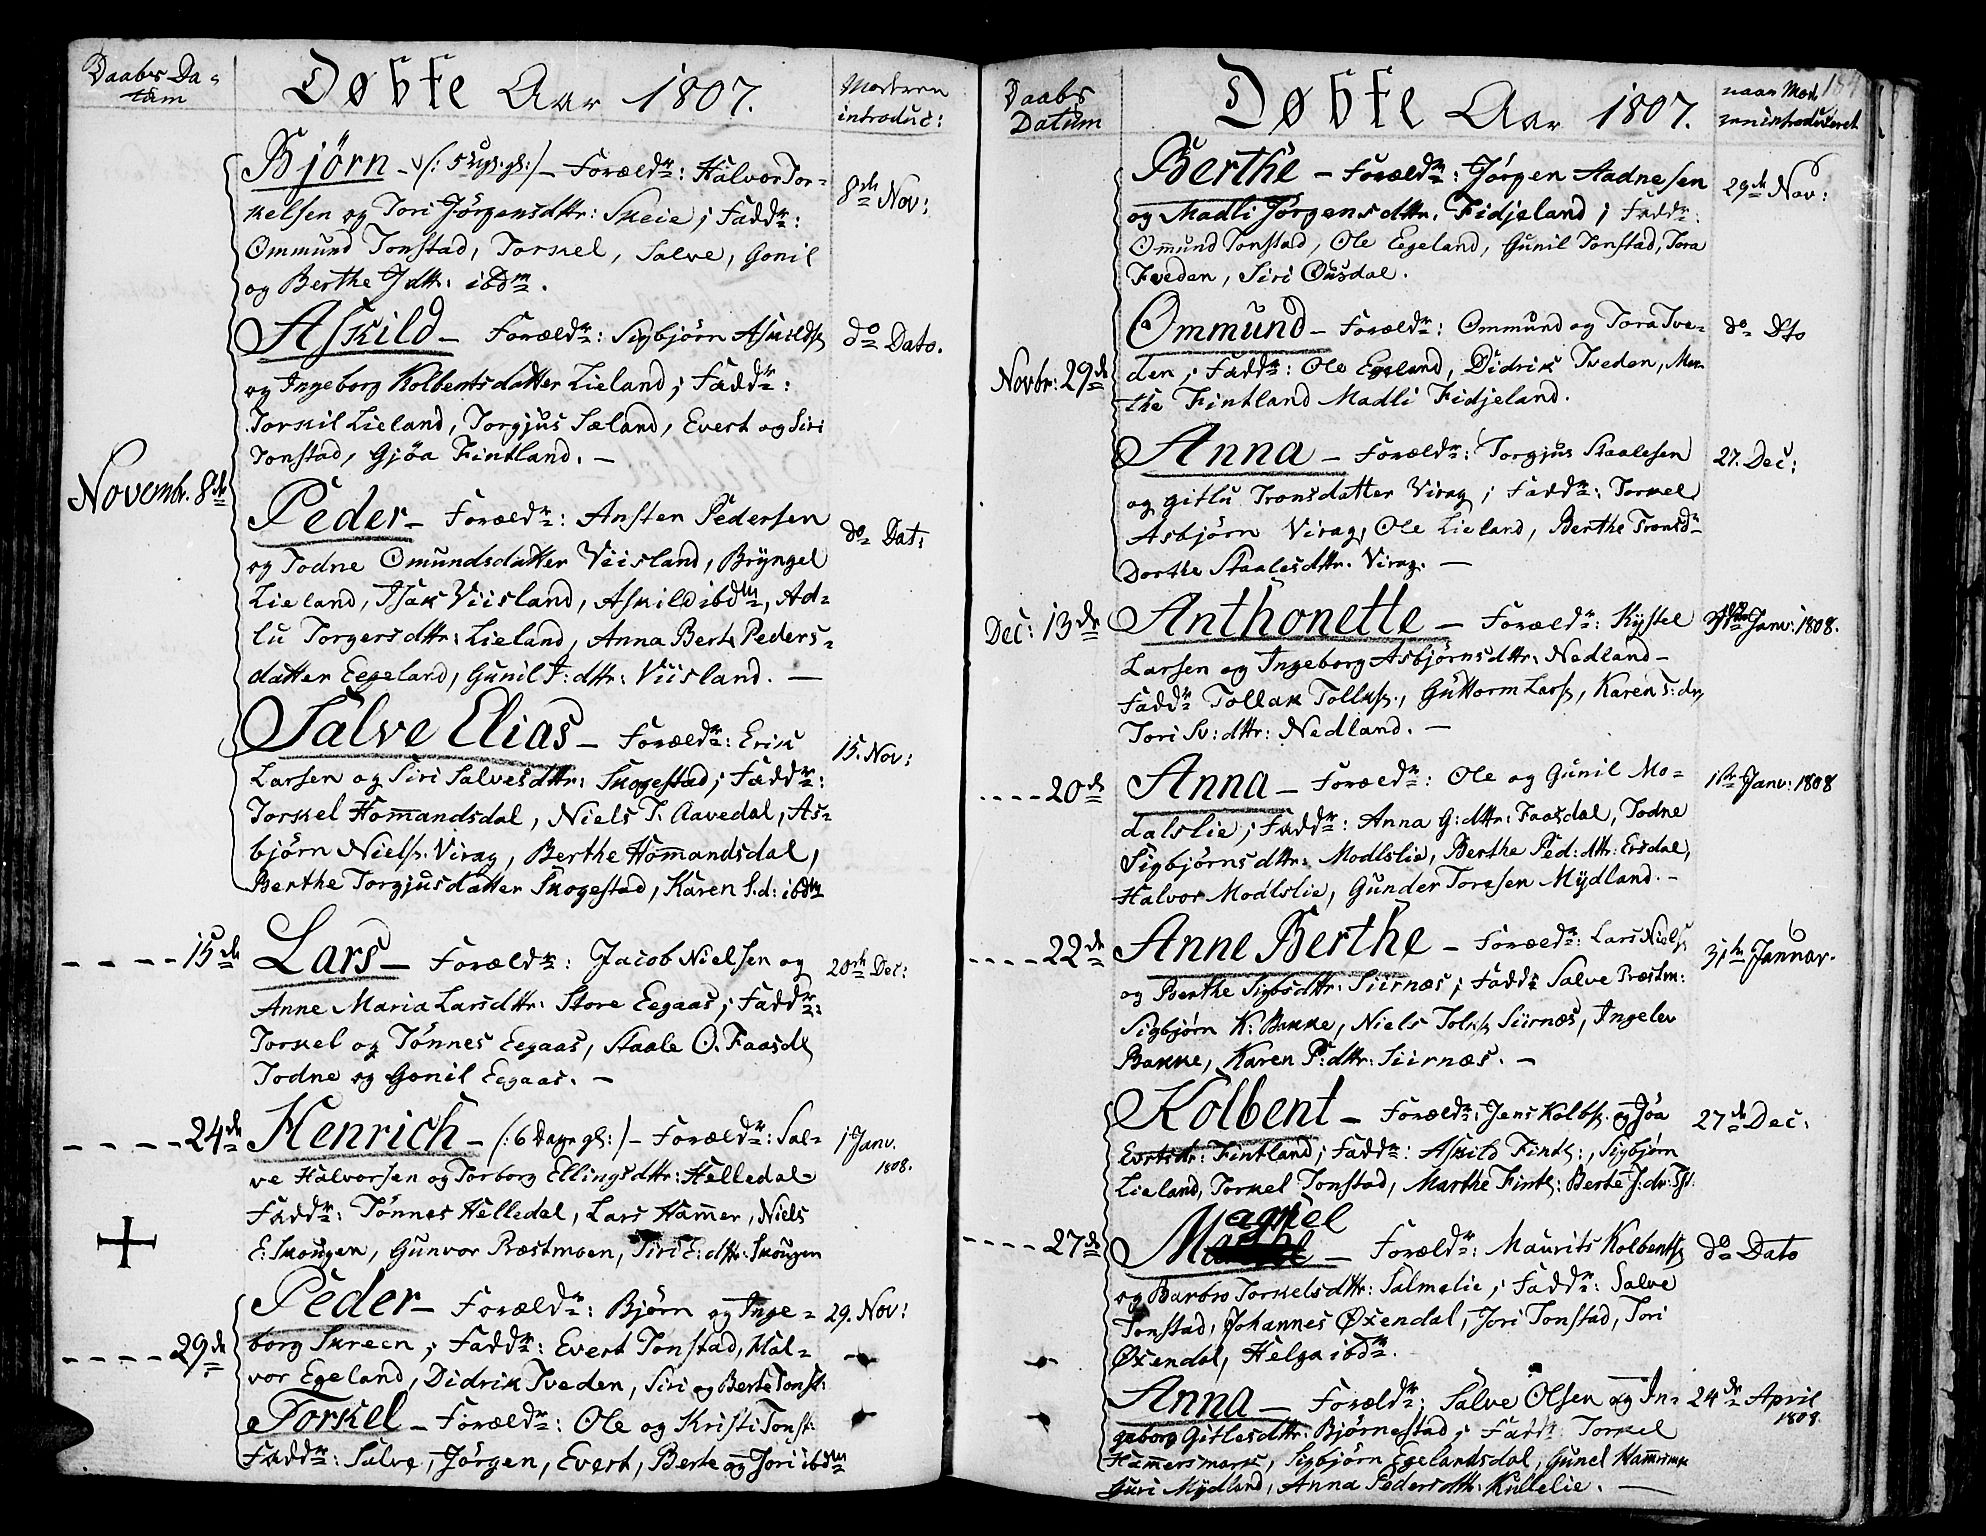 Daabs Da-
tum
Døbte Aar 1807.
Moderen
introduc:
Novembr. 8de
Bjørn - (: 5 Ug: gl:) - Foræld: Halvor Tor-
kelsen og Tori Jørgensdttr: Skeie; Fadd:
Ommund Tonstad, Torkel, Salve, Gonil
og Berthe Jdttr: ibdm.
8de Nov:
Askild - Foræld: Sigbjørn Askilds
og Ingeborg Kolbentsdatter Lieland; Fadd:
Torkil Lieland, Torgjus Sæland, Evert og Siri
Tonstad, Gjöa Fintland. -
do Dato.
Peder - Foræld: Ansten Pedersen
og Todne Omundsdatter Viisland, Bryngel
Lieland, Isak Viisland, Askild ibdm, Ad-
lu Torgersdttr: Lieland, Anna Berte Peders-
datter Eegeland, Gunil T: dttr: Viisland. -
do Dat:
Salve Elias - Foræld: Erik
Larsen og Siri Salvesdttr: Skogestad; Fadd:
Torkel Hommandsdal, Niels T. Aavedal, As-
bjørn Niels. Virag, Berthe Hommandsdal,
Berthe Torgjusdatter Skogestad, Karen S.d: ibdm
15. Nov:
15de
Lars - Foræld: Jacob Nielsen og
Anne Maria Larsdttr: Store Eegaas; Fadd:
Torkel og Tønnes Eegaas, Staale O. Faasdl
Todne og Gonil Eegaas. -
20de Dec:
24de
Henrich - (: 6 Dage gl:) - Foræld: Sal-
ve Halvorsen og Torborg Ellingsdttr: Helledal -
Fadd: Tønnes Helledal, Lars Hammer, Niels
E: Skougen, Gunvor Præstmoen, Siri E: dttr: Skougen
1 Janv.
1808.
29de
Peder - Foræld: Bjørn og Inge-
borg Skreen; Fadd: Evert Tonstad, Hal-
vor Egeland, Didrik Tveden, Siri og Berte Tonst:
29. Nov:
Torkel - Foræld: Ole og Kristi Tonst:
Fadd: Salve, Jörgen, Evert, Berte og Jori ibdm
Daabs
Datum
Døbte Aar 1807.
naar Mod
ren introduceret
Novbr: 29de
Berthe - Foræld: Jörgen Aadnesen
og Madli Jørgensdttr. Fidjeland; Fadd:
Omund Tonstad, Ole Egeland, Gunil Tonstad, Tora
Tveden, Siri Ousdal.
29de Nov:
Ommund - Foræld: Ommund og Tora Tve-
den; Fadd: Ole Egeland, Didrik Tveden, Mar-
the Fintland Madli Fidjeland.
do Dto
Anna - Foræld: Torgjus Staalesen
og Gitlu Tronsdatter Virag; Fadd: Torkel
Asbjørn Virag, Ole Lieland, Berthe Tronsd
Dorthe Staalesdttr. Virag. -
27. Dec:
Dec: 13de
Anthonette - Foræld: Kystel
Larsen og Ingeborg Asbjørnsdttr: Nedland -
Fadd Tollak Tolls., Guttorm Lars, Karen T: dr,
Tori Sv: dttr: Nedland. -
Janv: 1808.
20de
Anna - Foræld: Ole og Gunil Mo-
dalslie; Fadd: Anna G: dttr: Faasdal, Todne
Sigbjørnsdttr: Modlslie, Berthe Ped: dttr: Ersdal,
Halvor Modlslie, Gunder Toresen Mydland. -
1ste Janv: 1808
22de
Anne Berthe - Foræld: Lars Niels
og Berthe Sigbsdttr: Siirnæs; Fadd Salve Præstm:
Sigbjørn K: Bakke, Niels Tolls Siirnæs, Ingelev
Bakke, Karen P: dttr: Siirnæs. -
31te Januar.
27de
Kolbent - Foræld: Jens Kolbs. og Jöa
Evertsdr: Fintland; Fadd: Askild Fintl:, Sigbjørn
Lieland, Torkel Tonstad, Marthe Fintl: Berte J: dr: Tst:
27de Dec:
Magnel - Foræld: Maurits Kolbents
og Barbro Torkelsdttr: Salmelie; Fadd: Salve
Tonstad, Johannes Øxendal, Jori Tonstad, Tori
Øxendal, Helga ibdm.
do Dato
Anna - Foræld: Salve Olsen og In-
geborg Gitlesdttr: Bjørnestad; Fadd: Torkel
Hammersmark, Sigbjørn Egelandsdal, Gunel Hammsmk
Guri Mydland, Anna Pedersdttr: Kullelie. -
24de April
1808.